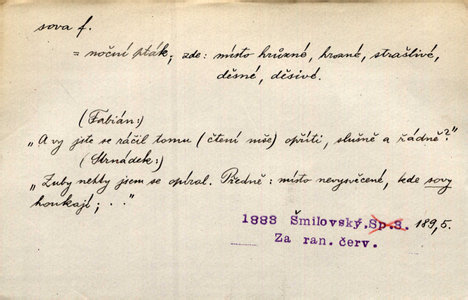 sova f.
= noční pták; zde: místo hrůzné, hrozné, strašlivé,
děsné, děsivé.
(Fabián:)
„A vy jste se ráčil tomu (čtení mše) opříti, slušně a řádně?"
(Strnádek:)
„Zuby nehty jsem se opíral. Předně: místo nevysvěcené, kde sovy
houkají; . ."
1883 Šmilovský.Sp.3. 189,5.
Za ran. červ.